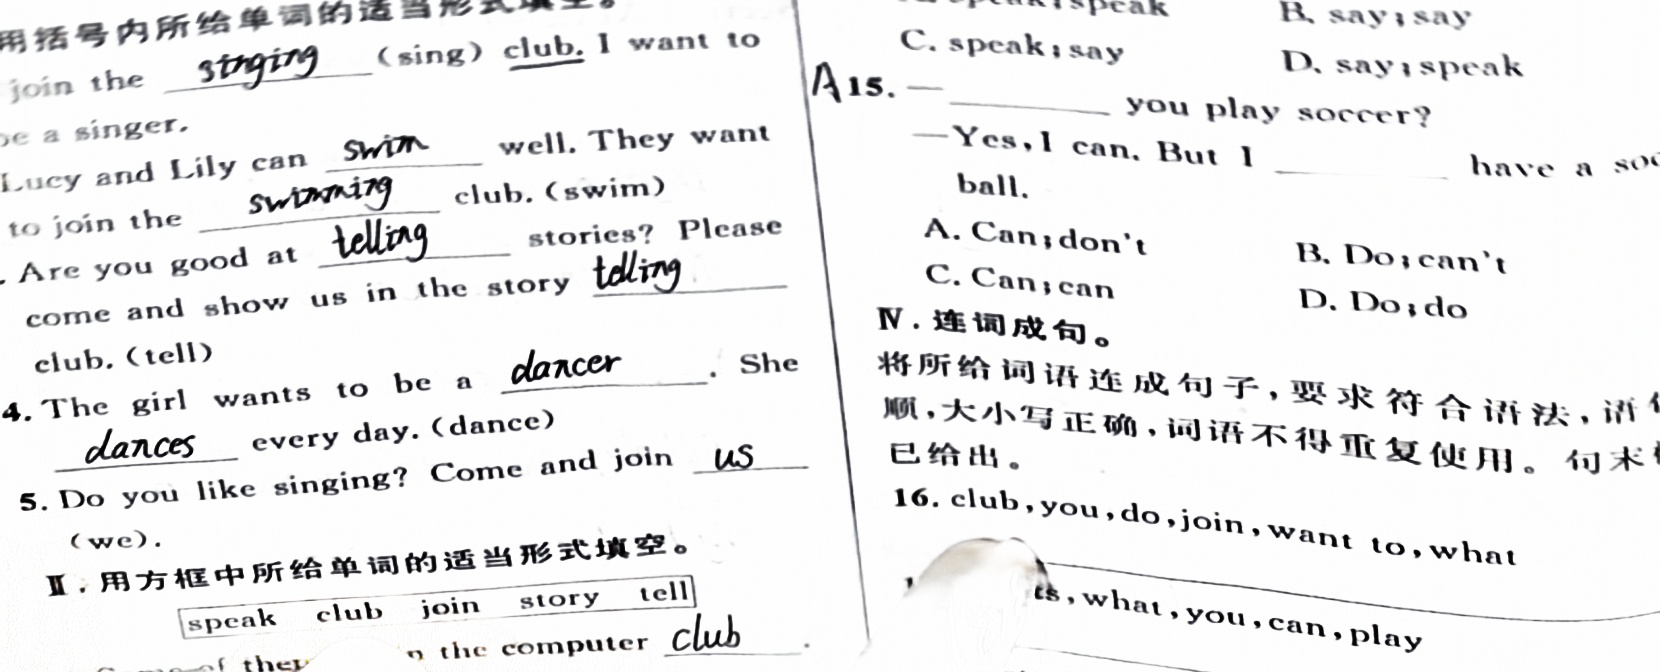 用括号内所给单词的适当形式填空。
join the singing (sing) club. I want to
be a singer.
Lucy and Lily can swim well. They want
to join the swimming club. (swim)
. Are you good at telling stories? Please
come and show us in the story telling
club. (tell)
4. The girl wants to be a dancer. She
dances every day. (dance)
5. Do you like singing? Come and join us
(we).
Ⅱ. 用方框中所给单词的适当形式填空。
speak club join story tell
the computer club.
speak
B. say; say
C. speak; say
D. say; speak
A 15. — you play soccer?
—Yes, I can. But I have a
ball.
A. Can; don't
B. Do; can't
C. Can; can
D. Do; do
Ⅳ. 连词成句。
将所给词语连成句子,要求符合语法,语
顺,大小写正确,词语不得重复使用。句末
已给出。
16. club, you, do, join, want to, what
, what, you, can, play